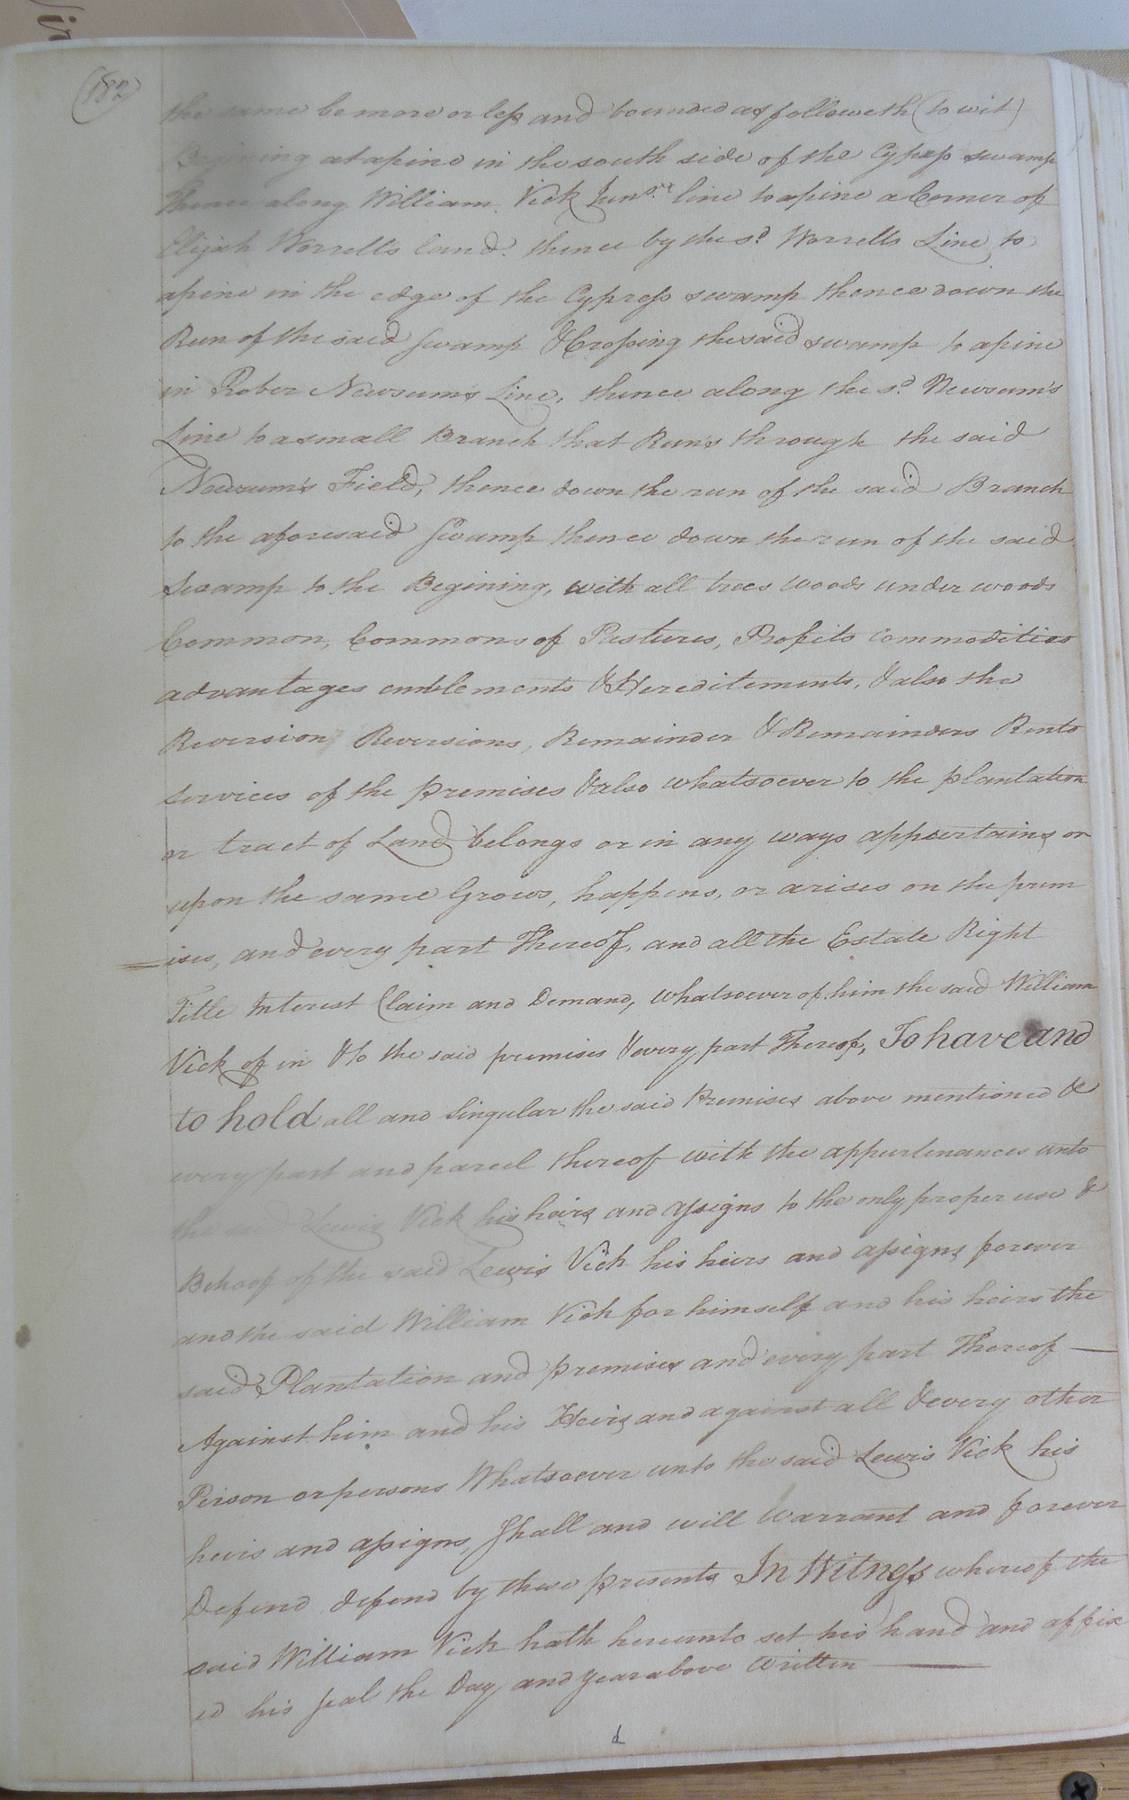 (182)
the same be more or less and bounded as followeth (to wit)
Begining at a pine in the south side of the Cypress swamp
Thence along William Vick Junr. line to a pine a Corner of
Elijah Worrells land. thence by the sd. Worrells Line to
a pine in the edge of the Cypress swamp thence down the
Run of the said swamp & Crossing the said swamp to a pine
in Rober Newsums Line, thence along the sd. Newsum's
Line to a small Branch that Runs through the said
Newsum's Field, thence down the run of the said Branch
to the aforesaid Swamp thence down the run of the said
Swamp to the Begining, with all trees woods under woods
Common, Commons of Pastures, Profits commodities
advantages emblements & Hereditements, & also the
Reversion Reversions, Remainder & Remainders Rents
services of the premises & also whatsoever to the plantation
or tract of Land belongs or in any ways appertains or
upon the same Grows, happens, or arises on the prem
=ises, and every part Thereof, and all the Estate Right
Title Interest Claim and Demand, whatsoever of him the said William
Vick of in & to the said premises & every part Thereof, To have and
to hold all and Singular the said Premises above mentioned &
every part and parcel thereof with the appurtenances unto
the said Lewis Vick his heirs and assigns to the only proper use &
Behoof of the said Lewis Vick his heirs and assigns forever
and the said William Vick for himself and his heirs the
said Plantation and premises and every part Thereof —
Against him and his Heirs and against all & every other
Person or persons Whatsoever unto the said Lewis Vick his
heirs and assigns, Shall and will Warrant and forever
Defend defend by these presents In Witness whereof the
said William Vick hath hereunto set his hand and affix
ed his seal the Day and year above Written —